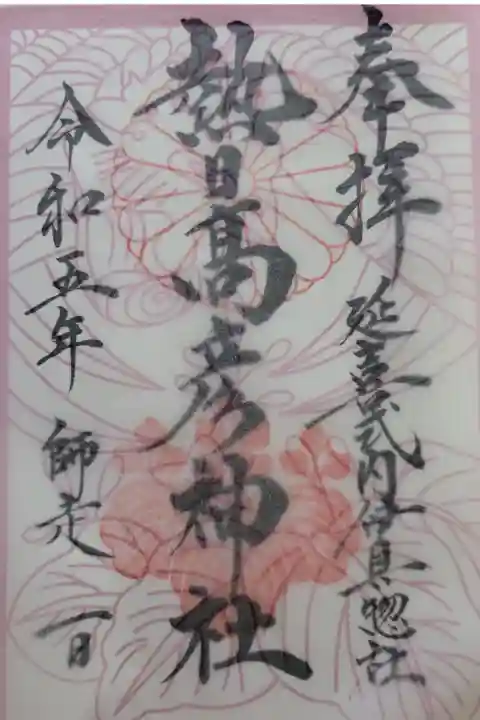 奉拝 延喜式内伊具惣社
熱日高彦神社
令和五年 師走 一日